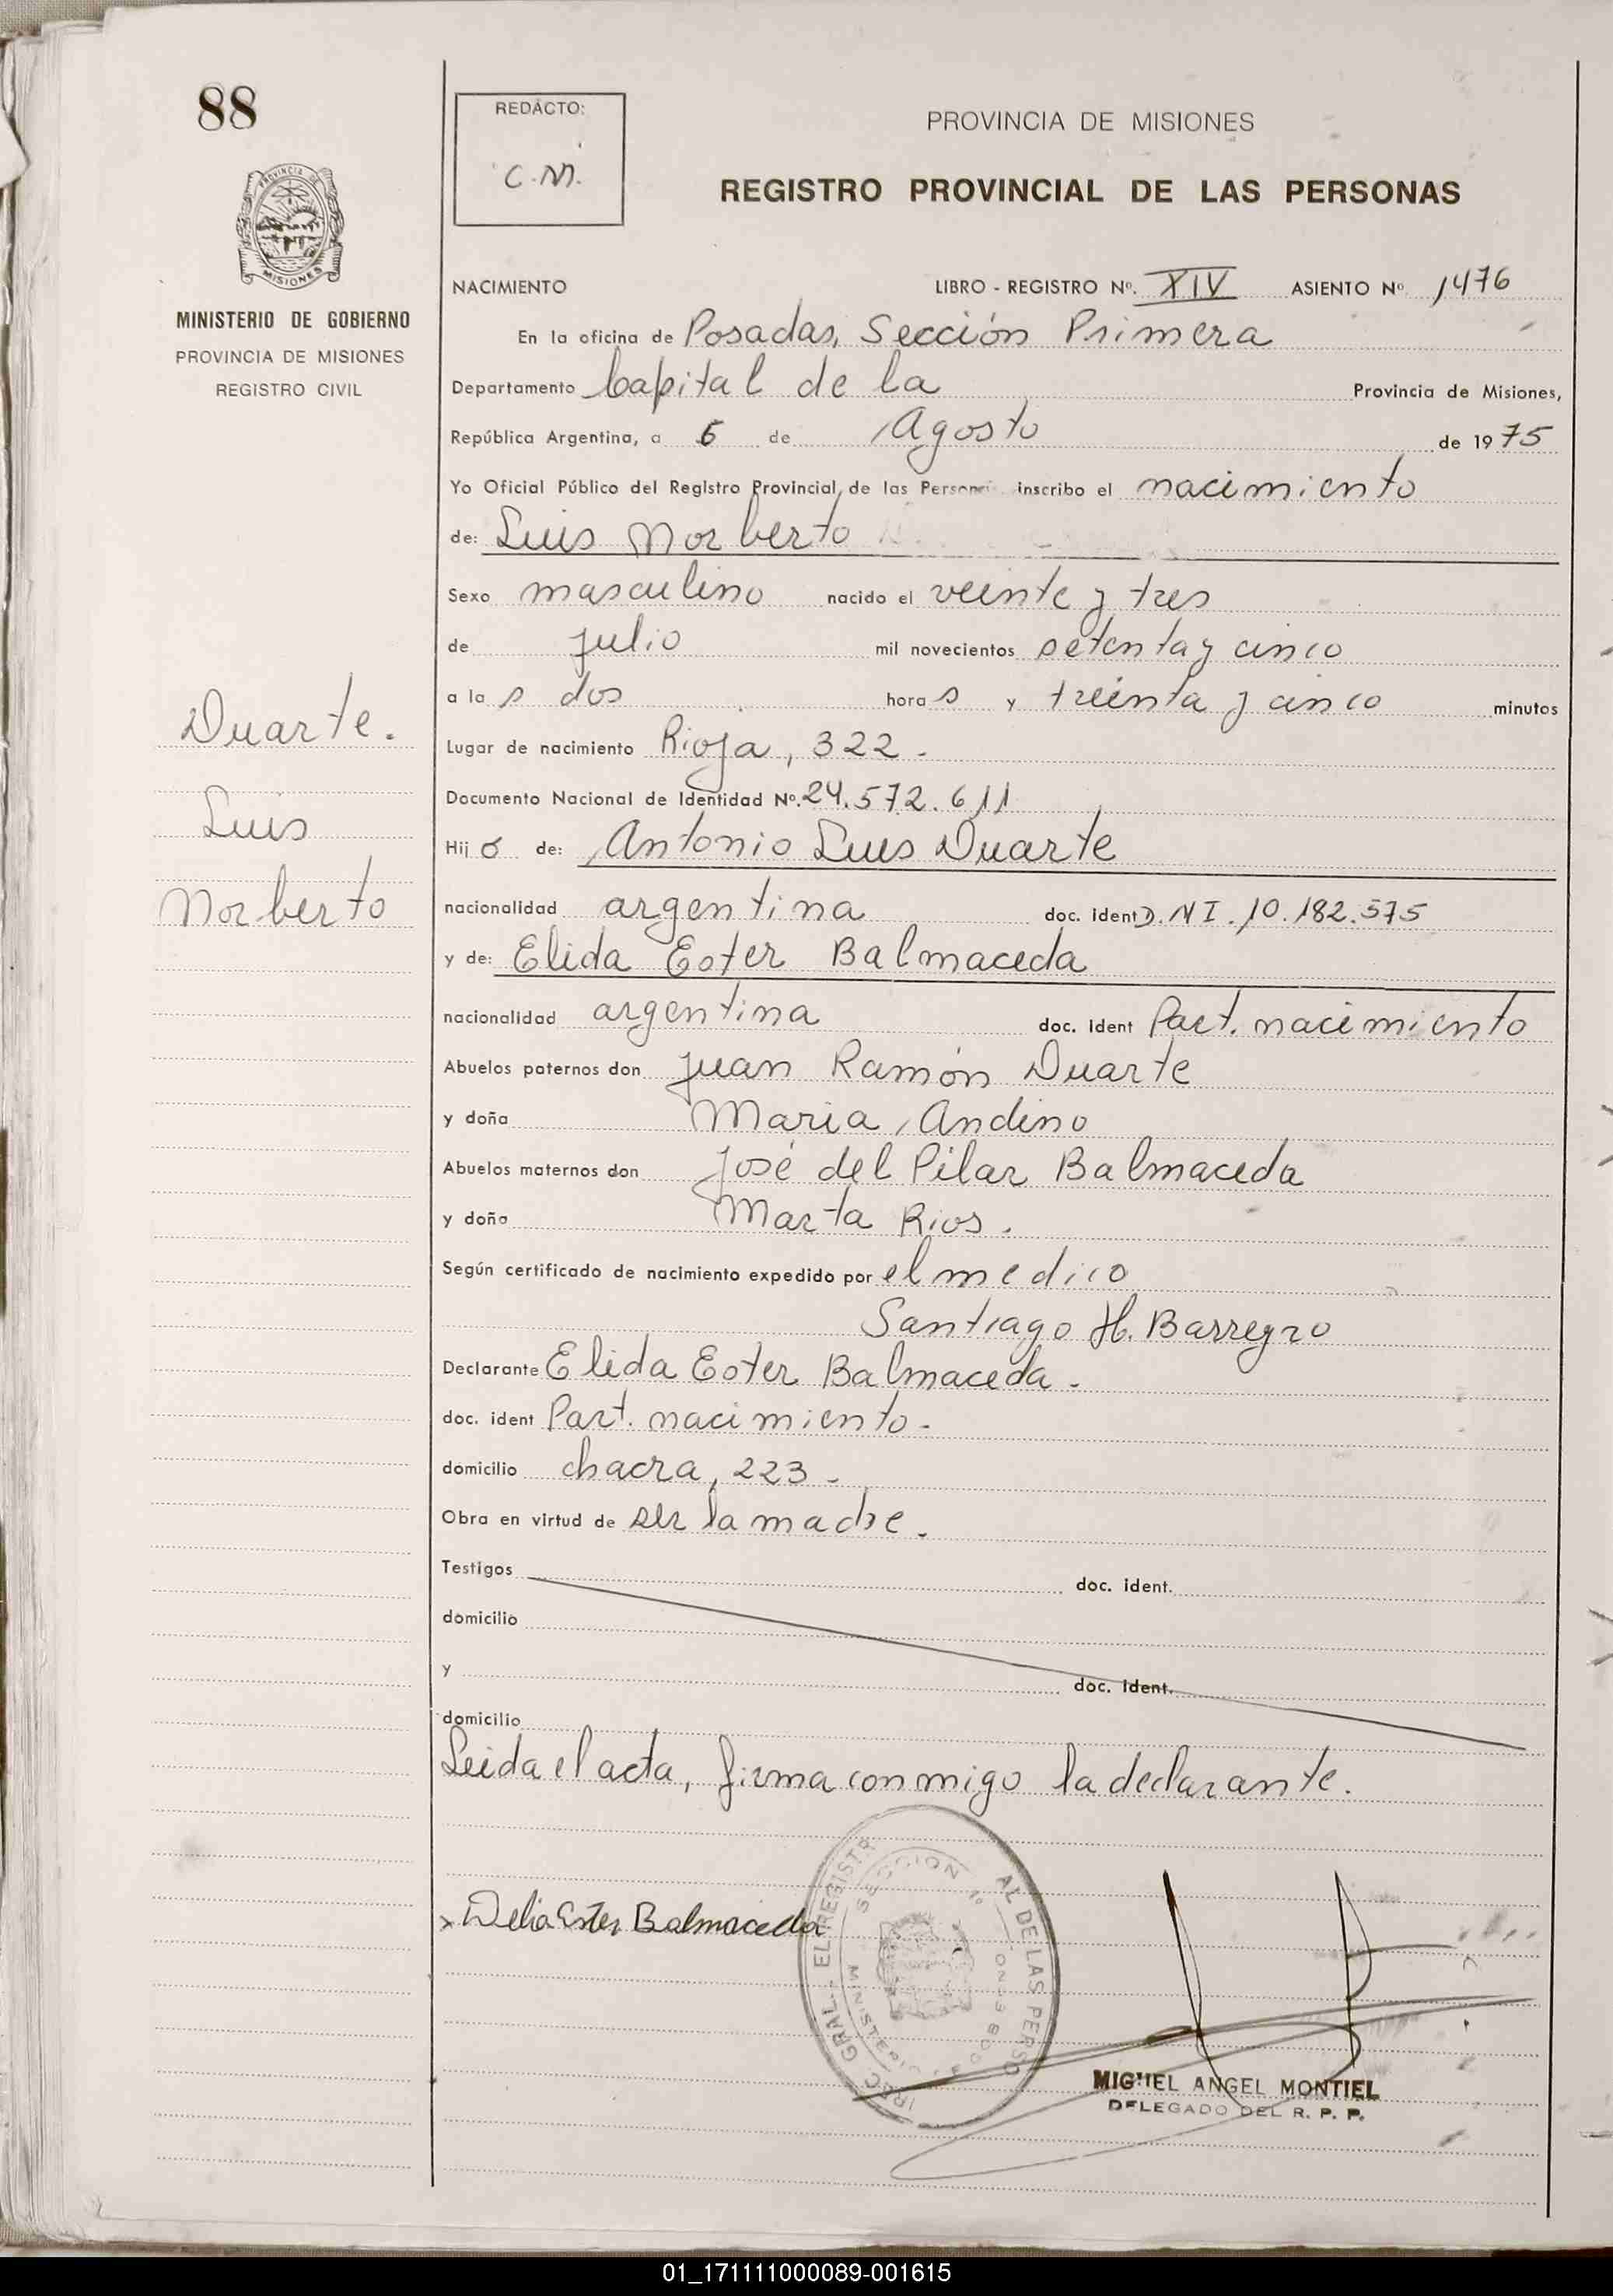 88
REDACTO:
C.M.
PROVINCIA DE MISIONES
REGISTRO PROVINCIAL DE LAS PERSONAS
PROVINCIA DE
MISIONES
MINISTERIO DE GOBIERNO
PROVINCIA DE MISIONES
REGISTRO CIVIL
NACIMIENTO LIBRO - REGISTRO Nº. XIV ASIENTO Nº 1476
En la oficina de Posadas, Sección Primera
Departamento Capital de la Provincia de Misiones,
República Argentina, a 5 de Agosto de 1975
Yo Oficial Público del Registro Provincial de las inscribo el nacimiento
de: Luis Norberto
Sexo masculino nacido el veinte y tres
de julio mil novecientos setenta y cinco
a la s dos hora s y treinta y cinco minutos
Duarte.
Luis
Norberto
Lugar de nacimiento Rioja, 322.
Documento Nacional de Identidad Nº. 24.572.611
Hij o de: Antonio Luis Duarte
nacionalidad argentina doc. ident D.N I. 10.182.575
y de: Elida Ester Balmaceda
nacionalidad argentina doc. ident Part. nacimiento
Abuelos paternos don Juan Ramón Duarte
y doña Maria Andino
Abuelos maternos don José del Pilar Balmaceda
y doña Marta Rios.
Según certificado de nacimiento expedido por el medico
Santiago H. Barreyro
Declarante Elida Ester Balmaceda.
doc. ident Part. nacimiento.
domicilio chacra, 223.
Obra en virtud de ser la madre.
Testigos doc. ident.
domicilio
y doc. ident.
domicilio
Leida el acta, firma conmigo la declarante.
x Delia Ester Balmaceda
SECCION 1º
AL DE LAS PERSO
MIGUEL ANGEL MONTIEL
DELEGADO DEL R. P. P.
01_171111000089-001615